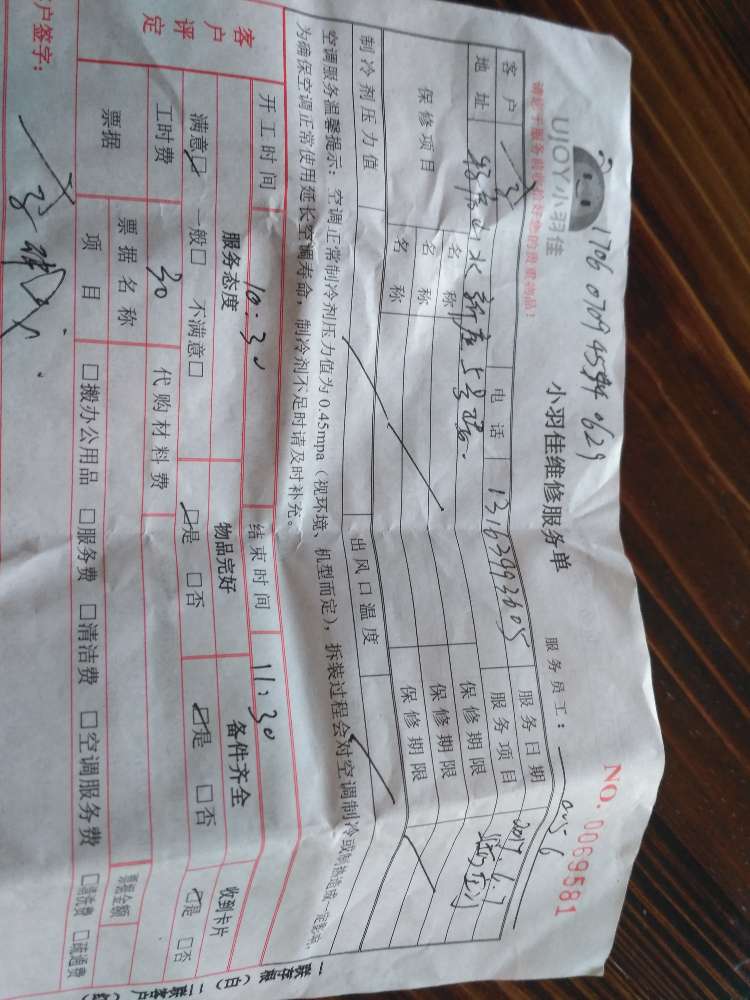 1706 0709 4594 0629
UJOY小羽佳
小羽佳维修服务单
NO. 0069581
服务员工:
客户
电话
13163993605
服务日期
2017.6.7
地址
服务项目
保修项目
名称
保修期限
名称
保修期限
名称
保修期限
制冷剂压力值
出风口温度
空调服务温馨提示:空调正常制冷剂压力值为0.45mpa(视环境、机型而定),拆装过程会对空调制冷或制热造成一定影响,
为确保空调正常使用延长空调寿命,制冷剂不足时请及时补充。
开工时间 10:30 结束时间 11:30
客户评定
服务态度 物品完好 备件齐全 收到卡片
满意☑ 一般□ 不满意□ ☑是 □否 ☑是 □否 ☑是 □否
工时费 30 代购材料费
票据 票据名称 票据金额
项目 □搬办公用品 □服务费 □清洁费 □空调服务费 □清洗费 □疏通费
户签字: